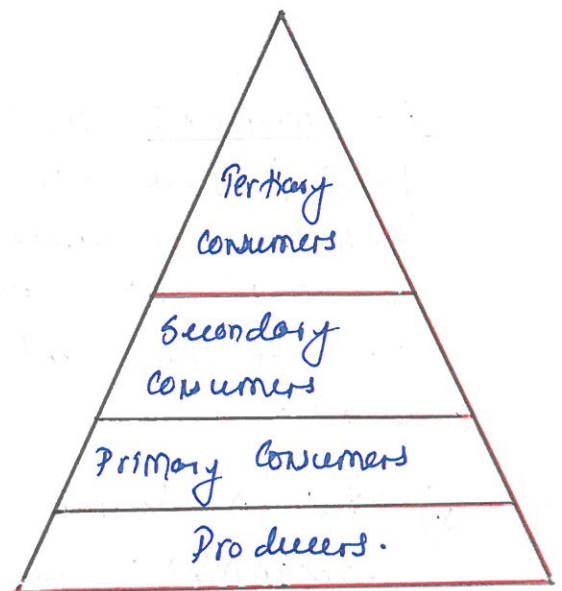 Tertiary
Consumers
Secondary
Consumers
Primary Consumers
Producers.